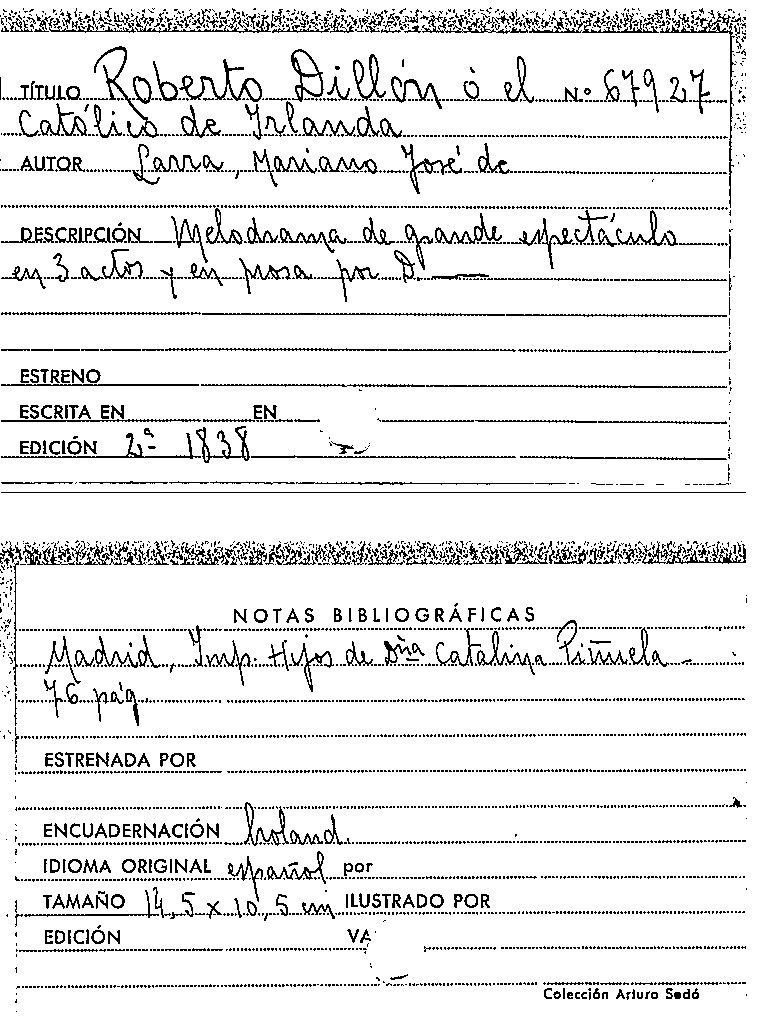 TÍTULO Roberto Dillón ó el Nº 67927
Católico de Irlanda
AUTOR Larra, Mariano José de
DESCRIPCIÓN Melodrama de grande espectáculo
en 3 actos y en prosa por D.
ESTRENO
ESCRITA EN EN
EDICIÓN 2ª 1838
NOTAS BIBLIOGRÁFICAS
Madrid, Imp. Hijos de Dña Catalina Piñuela -
76 pág.
ESTRENADA POR
ENCUADERNACIÓN holand.
IDIOMA ORIGINAL español por
TAMAÑO 14,5 x 10,5 cm ILUSTRADO POR
EDICIÓN VA
Colección Arturo Sedó